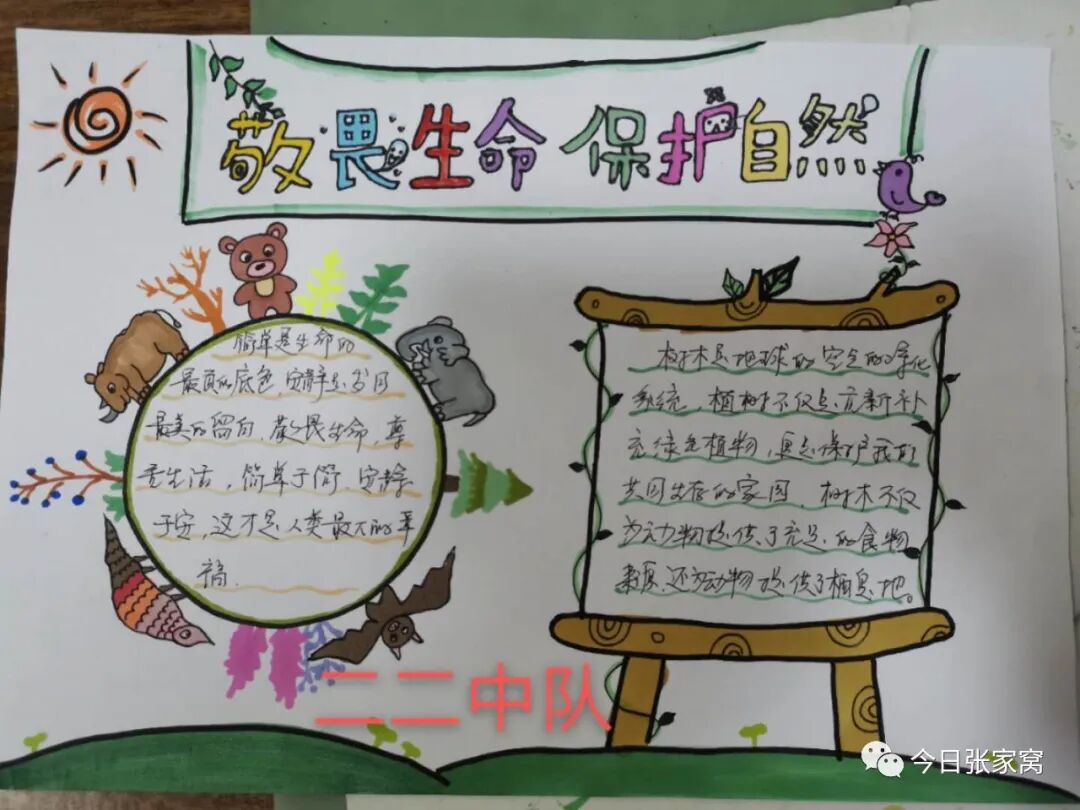 敬畏生命 保护自然
简单是生命的
最真的底色,安静是岁月
最美的留白,敬畏生命,尊
重生活,简单于简,安静
于安,这才是人类最大的幸
福.
树木是地球的空气的净化
系统,植树不仅是重新补
充绿色植物,更是保护我们
共同生存的家园,树木不仅
为动物提供了充足的食物
来源,还为动物提供了栖息地。
二二中队
今日张家窝